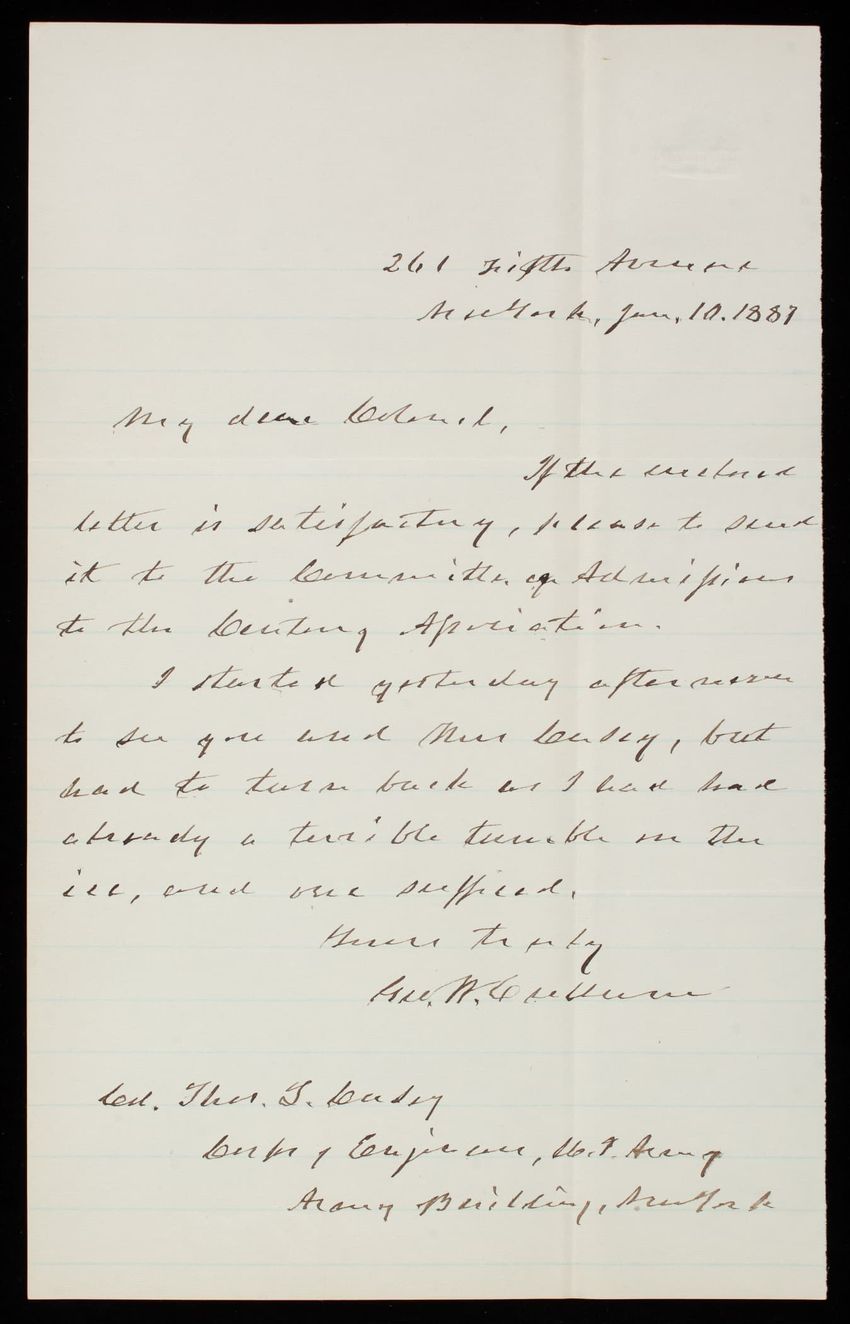 261 Fifth Avenue
New York, Jan. 10. 1887
My dear Colonel,
If the enclosed
letter is satisfactory, please to send
it to the Committee on Admissions
to the Century Association.
I started yesterday afternoon
to see you and Mrs Casey, but
had to turn back as I had had
already a terrible tumble on the
ice, and one sufficed.
Yours truly
Geo. W. Cullum
Col. Thos. L. Casey
Corps of Engineers, U.S. Army
Army Building, New York